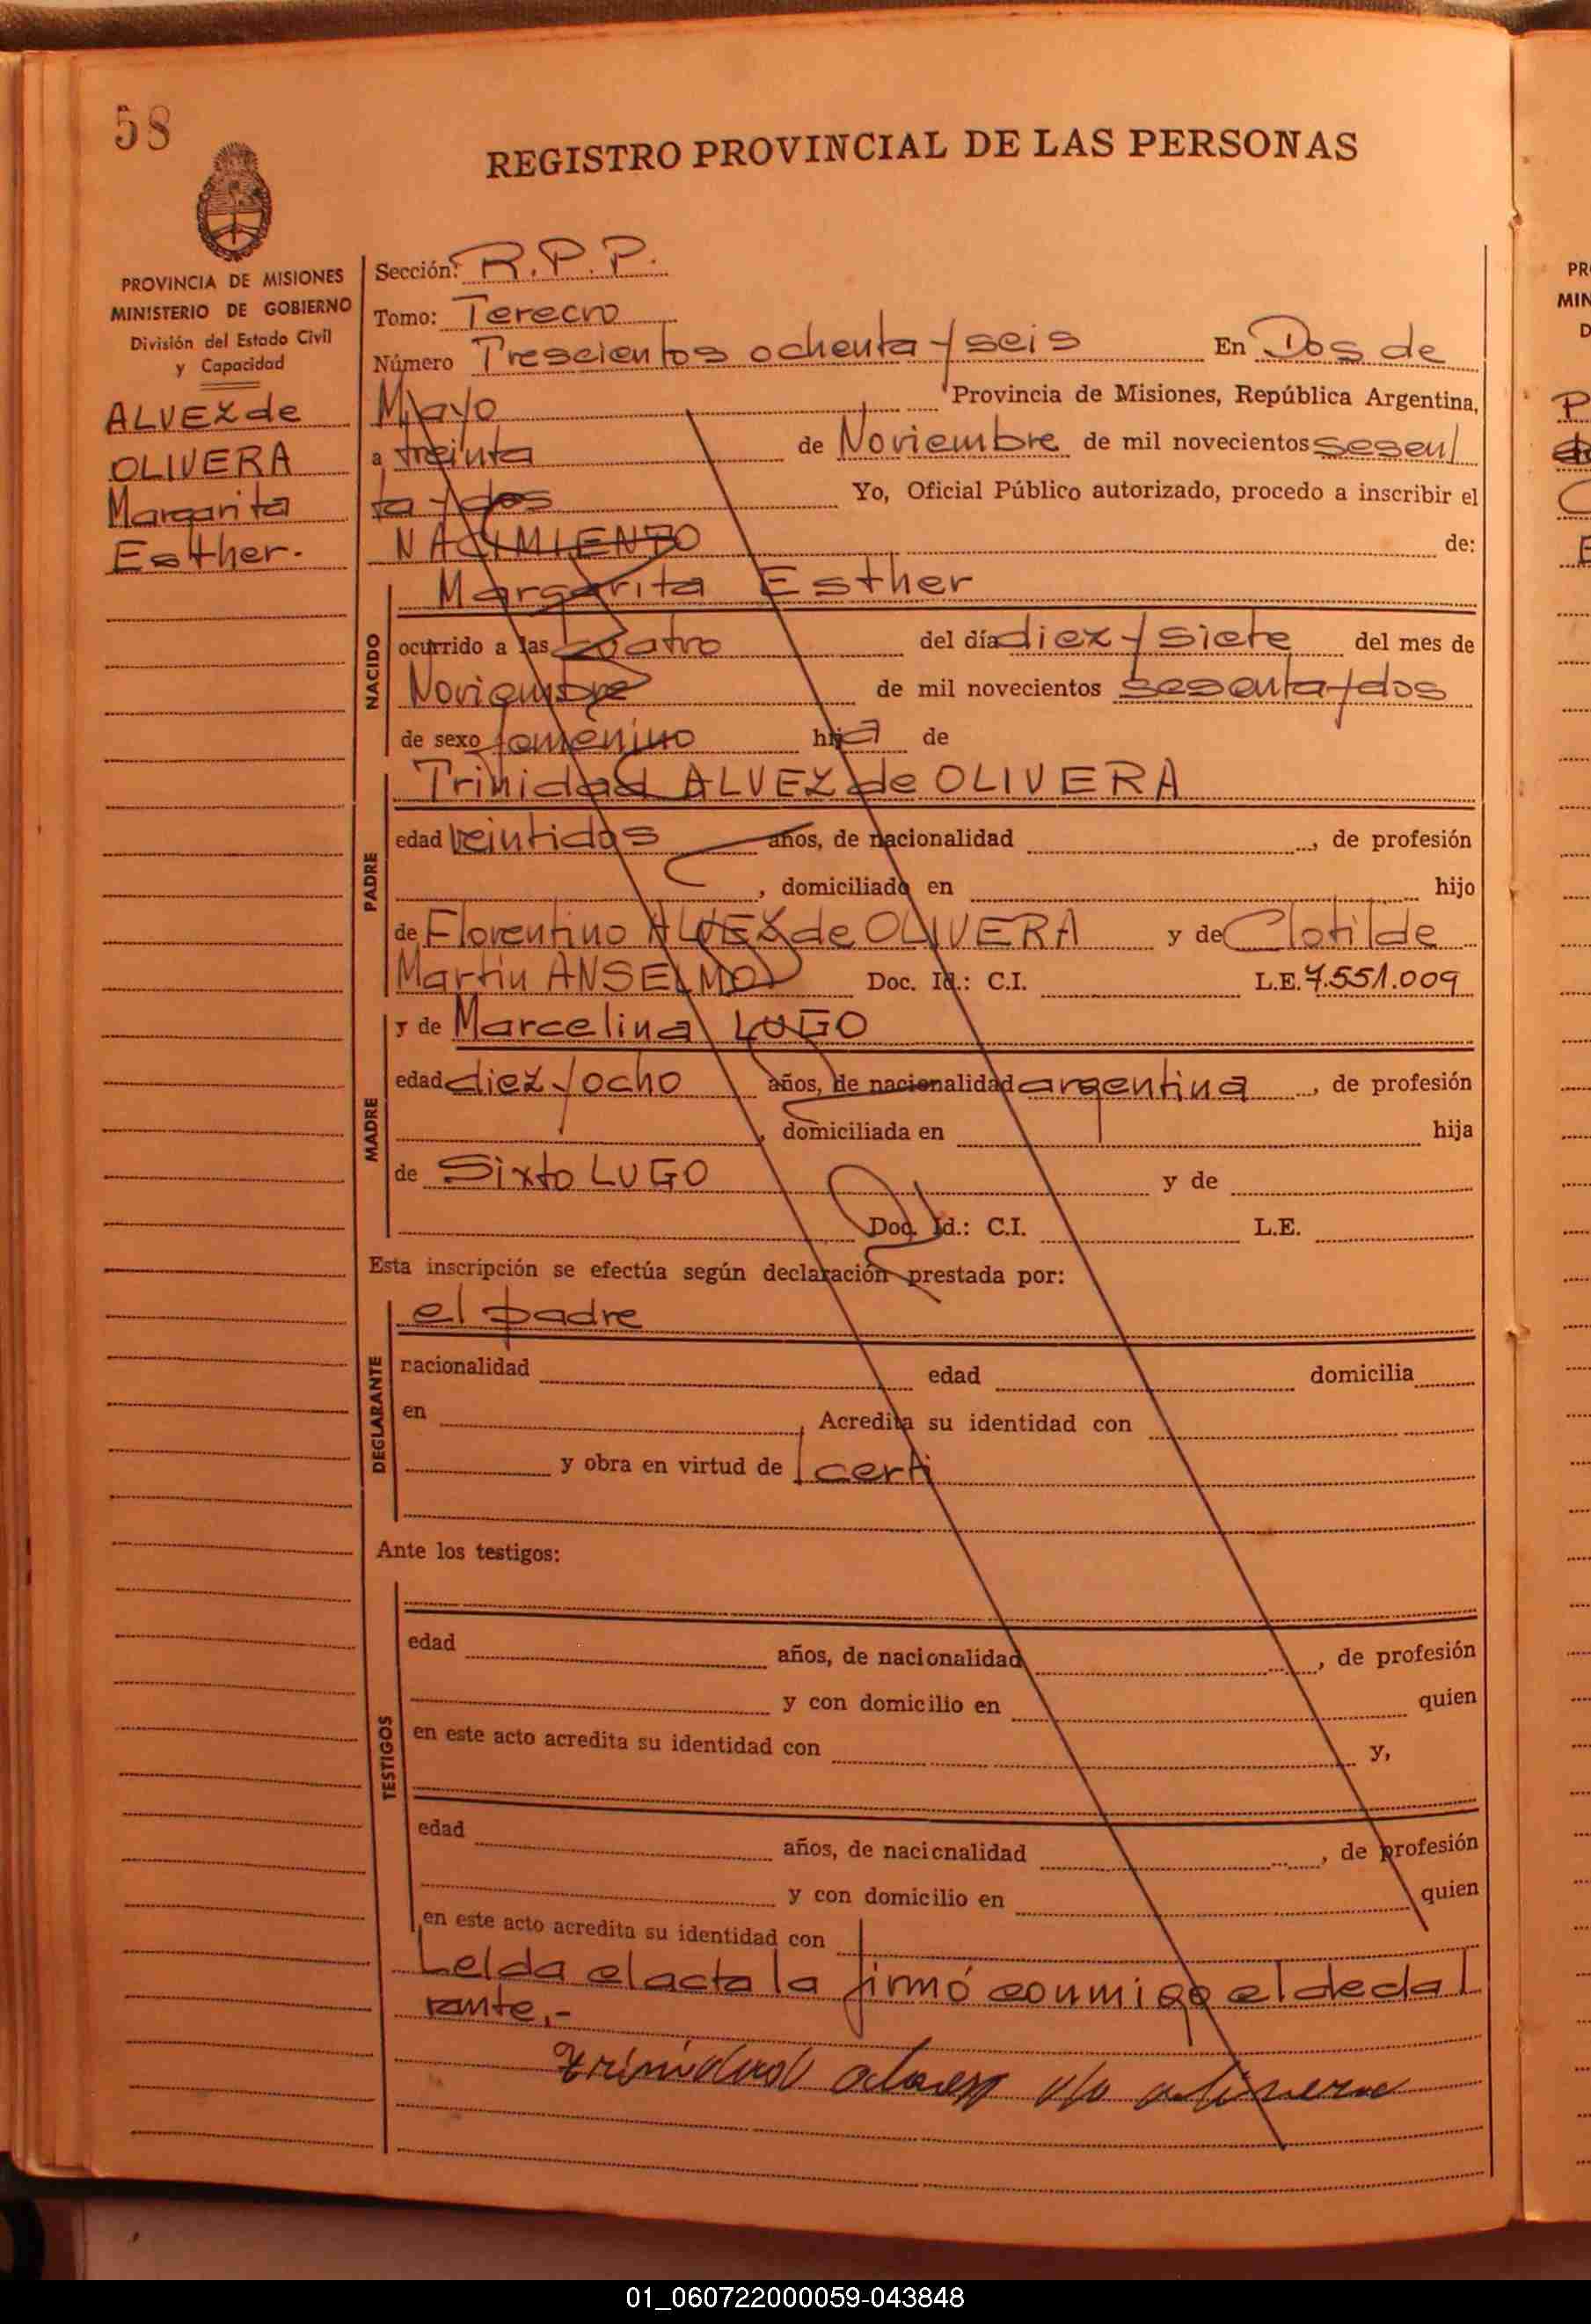 58
REGISTRO PROVINCIAL DE LAS PERSONAS
PROVINCIA DE MISIONES
MINISTERIO DE GOBIERNO
División del Estado Civil
y Capacidad
ALVEZ de
OLIVERA
Margarita
Esther.
Sección: R.P.P.
Tomo: Terecro
Número Trescientos ochenta y seis En Dos de
Mayo Provincia de Misiones, República Argentina,
a treinta de Noviembre de mil novecientos sesen
ta y dos Yo, Oficial Público autorizado, procedo a inscribir el
NACIMIENTO de:
NACIDO
Margarita Esther
ocurrido a las cuatro del día diez y siete del mes de
Noviembre de mil novecientos sesenta y dos
de sexo femenino hija de
PADRE
Trinidad ALVEZ de OLIVERA
edad veintidos años, de nacionalidad , de profesión
, domiciliado en hijo
de Florentino ALVEZ de OLIVERA y de Clotilde
Martin ANSELMO Doc. Id.: C.I. L.E. 7.551.009
MADRE
y de Marcelina LUGO
edad diez y ocho años, de nacionalidad argentina , de profesión
, domiciliada en hija
de Sixto LUGO y de
Doc. Id.: C.I. L.E.
Esta inscripción se efectúa según declaración prestada por:
DEGLARANTE
el padre
racionalidad edad domicilia
en , Acredita su identidad con
y obra en virtud de certi
Ante los testigos:
TESTIGOS
edad años, de nacionalidad , de profesión
y con domicilio en quien
en este acto acredita su identidad con y,
edad años, de nacicnalidad , de profesión
y con domicilio en quien
en este acto acredita su identidad con
Leida el acta la firmó conmigo el decla
rante,-
trinidad alvez de olivera
01_060722000059-043848